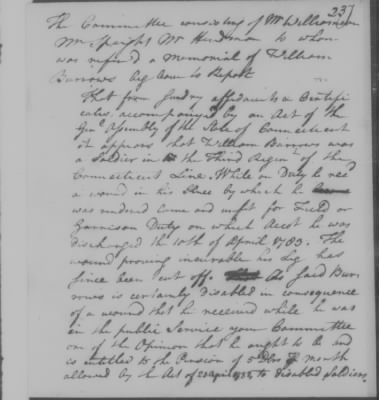 237
The Committee consisting of Mr Williamson
Mr Speight Mr Hindman to whom
was referred a Memorial of William
Burrows beg leave to Report
That from sundry affidavits & Certifi
cates, accompanied by an Act of the
Genl Assembly of the State of Connecticut
it appears that William Burrows was
a Soldier in the Third Regimt of the
Connecticut Line. While on Duty he recd
a wound in his by which he
was rendered lame and unfit for Field or
Garrison Duty on which Acct he was
discharged the 10th of April 1783. The
wound proving incurable his Leg has
since been cut off. As said Bur
rows is certainly Disabled in consequence
of a wound that he received while he was
in the public Service your Committee
are of the Opinion that he ought to be and
is entitled to the Pension of 5 Dlrs month
allowed by the Act of 23 April 1782, to disabled Soldiers